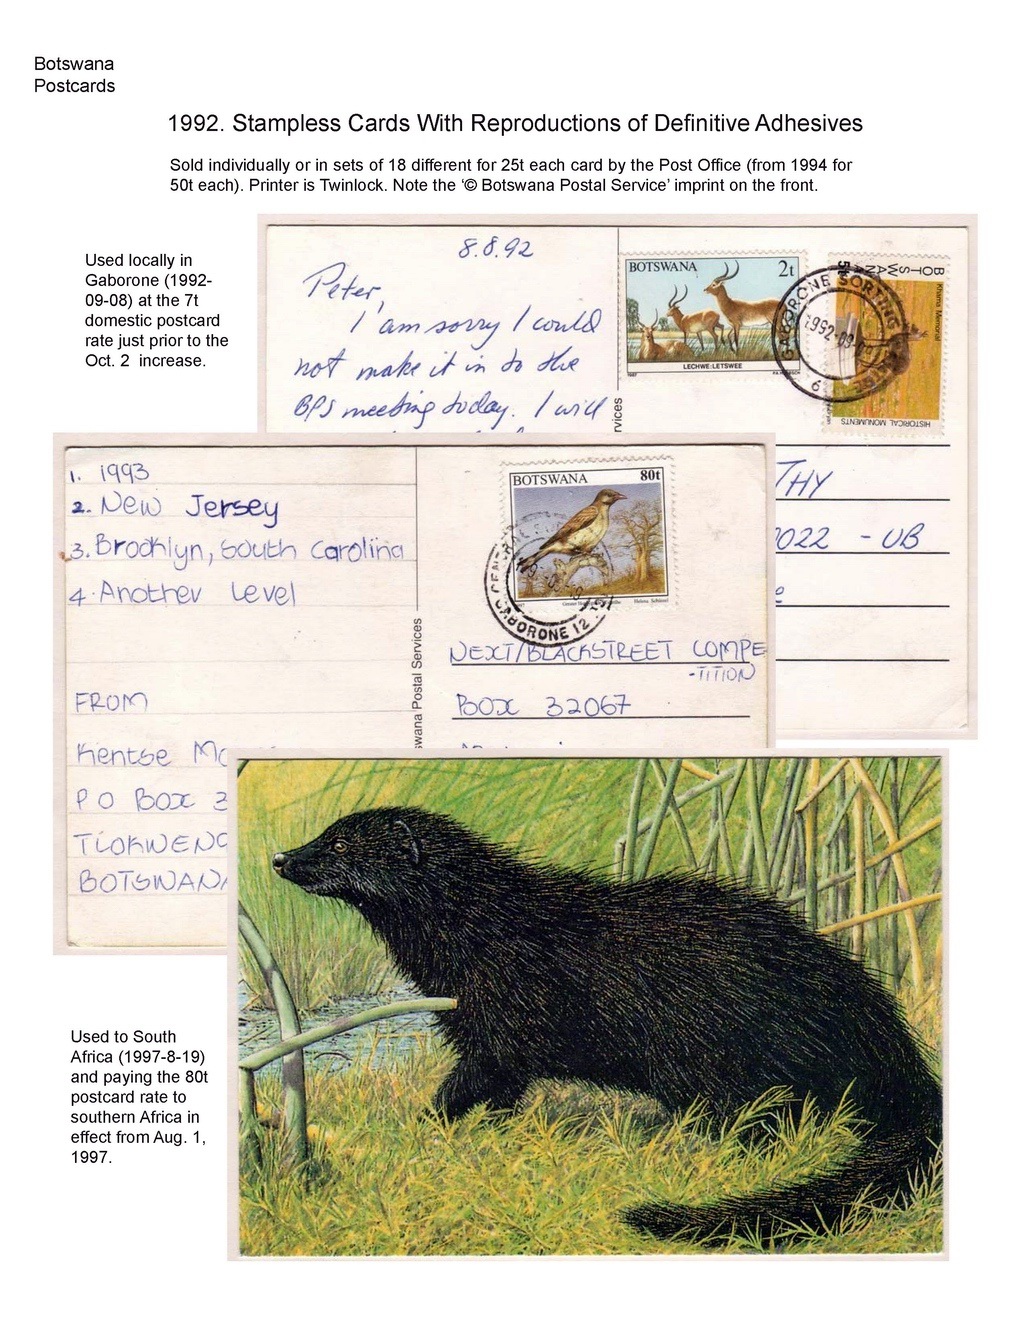 Botswana
Postcards
1992. Stampless Cards With Reproductions of Definitive Adhesives
Sold individually or in sets of 18 different for 25t each card by the Post Office (from 1994 for
50t each). Printer is Twinlock. Note the '© Botswana Postal Service' imprint on the front.
Used locally in
Gaborone (1992-
09-08) at the 7t
domestic postcard
rate just prior to the
Oct. 2 increase.
8.8.92
Peter,
I am sorry I could
not make it in to the
BPS meeting today. I will
BOTSWANA 2t
LECHWE:LETSWEE
1987
BOTSWANA
5t
Khama Memorial
HISTORICAL MONUMENTS
GABORONE SORTING
1992-09-0
6
vices
THY
022 - UB
1. 1993
2. New Jersey
3. Brooklyn, South Carolina
4. Another Level
FROM
Kentse Mo
P O Box 3
TLOKWENG
BOTSWANA
swana Postal Services
BOTSWANA 80t
GABORONE 12
NEXT/BLACKSTREET COMPE
-TITION
BOX 32067
Used to South
Africa (1997-8-19)
and paying the 80t
postcard rate to
southern Africa in
effect from Aug. 1,
1997.